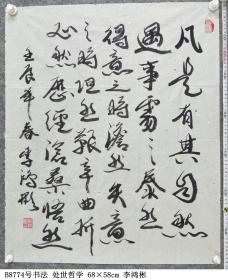 凡是有其自然
遇事处之泰然
得意之时澹然失意
之时坦然艰辛曲折
必然历经沧桑悟然
壬辰年春李鸿彬
B8774号书法 处世哲学 68×58cm 李鸿彬